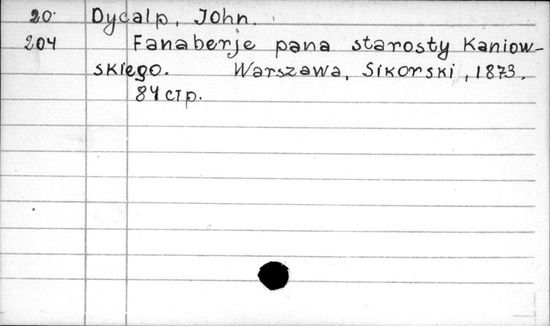 20 Dycalp, John.
204 Fanaberje pana starosty Kaniow-
skiego. Warszawa, Sikorski, 1873.
84 стр.